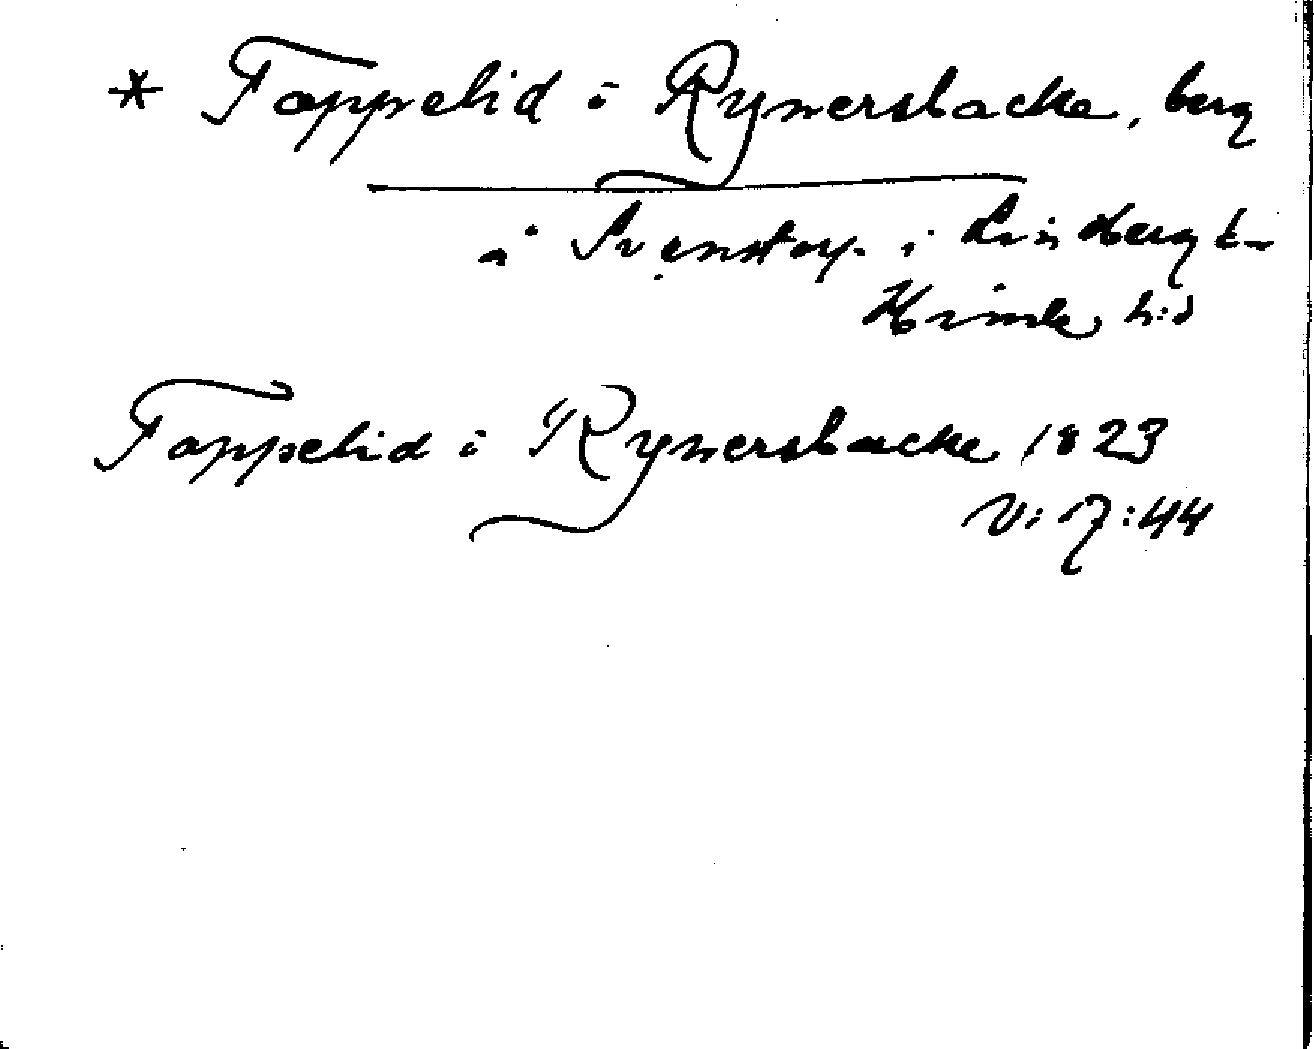 * Toppelid i Rymersbacke, berg
å Svenstorp i Lindberg sn
Himle hd
Toppelid i Rymersbacke 1823
V: 17:44